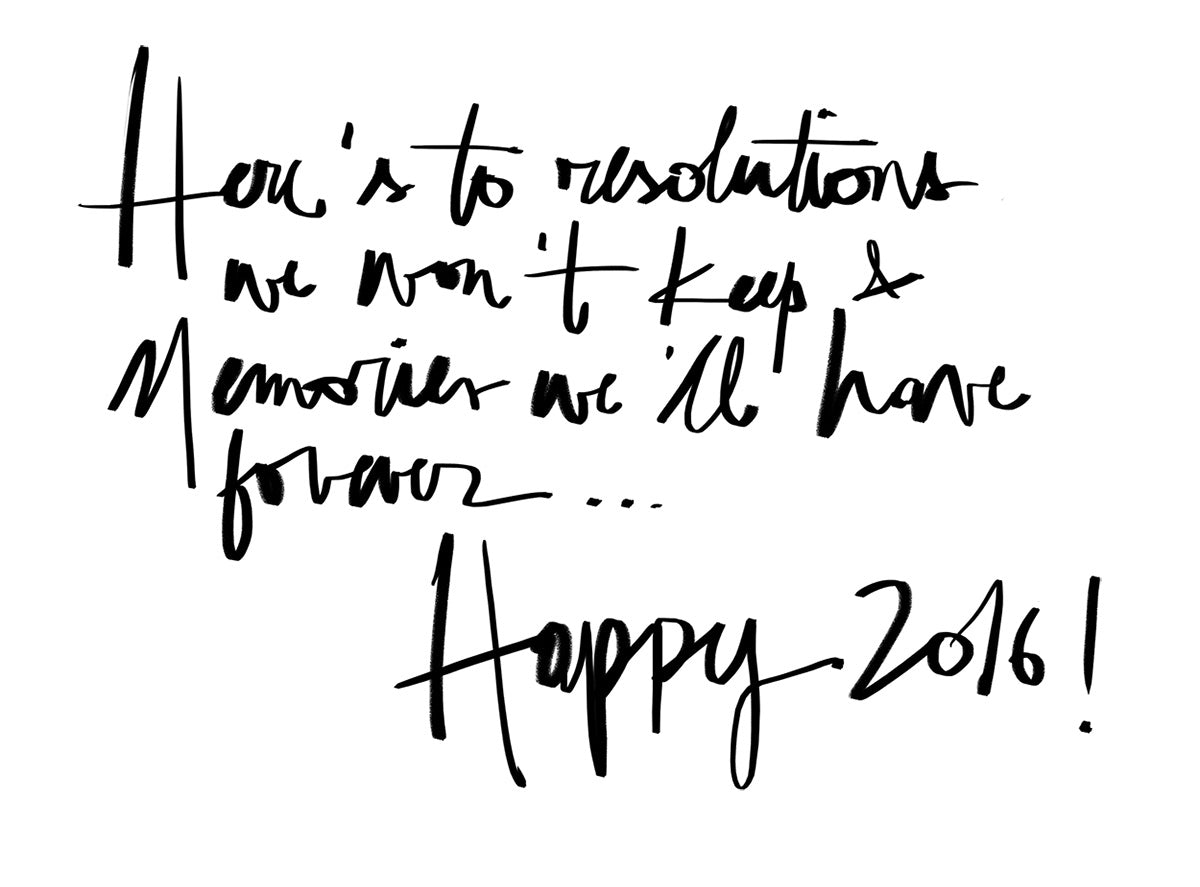 Here's to resolutions
we won't keep &
Memories we'll have
forever...
Happy 2016!